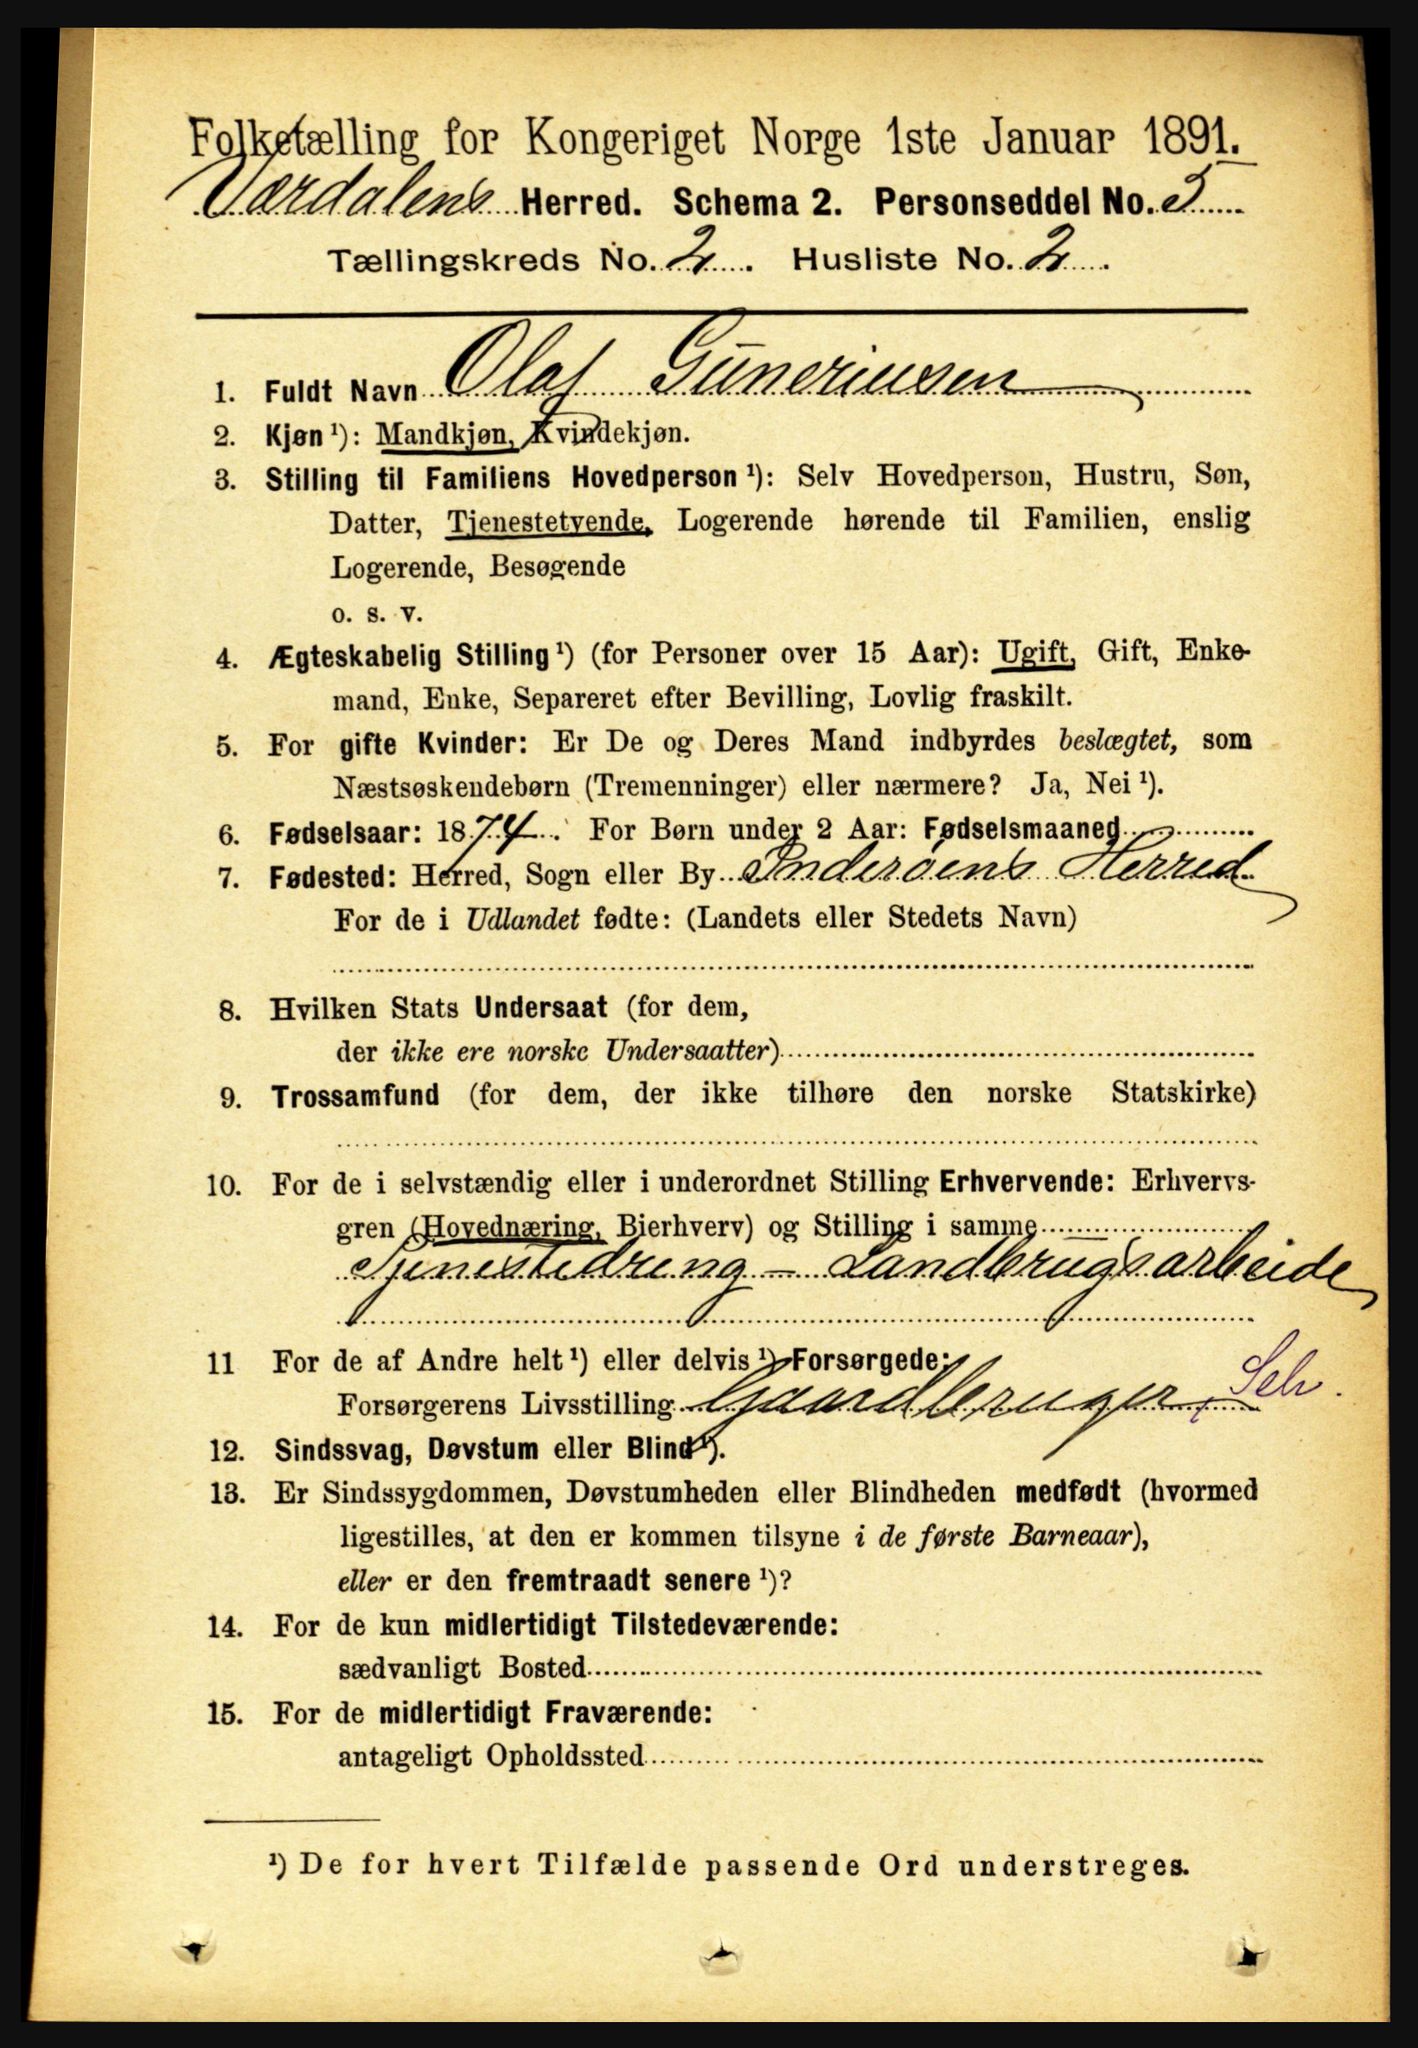 Folketælling for Kongeriget Norge 1ste Januar 1891.
Værdalens Herred. Schema 2. Personseddel No. 5
Tællingskreds No. 2. Husliste No. 2.
1. Fuldt Navn Olaf Guneriusen
2. Kjøn ¹): Mandkjøn, Kvindekjøn.
3. Stilling til Familiens Hovedperson ¹): Selv Hovedperson, Hustru, Søn,
Datter, Tjenestetyende, Logerende hørende til Familien, enslig
Logerende, Besøgende
o. s. v.
4. Ægteskabelig Stilling ¹) (for Personer over 15 Aar): Ugift, Gift, Enke-
mand, Enke, Separeret efter Bevilling, Lovlig fraskilt.
5. For gifte Kvinder: Er De og Deres Mand indbyrdes beslægtet, som
Næstsøskendebørn (Tremenninger) eller nærmere? Ja, Nei ¹).
6. Fødselsaar: 1874. For Børn under 2 Aar: Fødselsmaaned
7. Fødested: Herred, Sogn eller By Inderøens Herred
For de i Udlandet fødte: (Landets eller Stedets Navn)
8. Hvilken Stats Undersaat (for dem,
der ikke ere norske Undersaatter)
9. Trossamfund (for dem, der ikke tilhøre den norske Statskirke)
10. For de i selvstændig eller i underordnet Stilling Erhvervende: Erhvervs-
gren (Hovednæring, Bierhverv) og Stilling i samme
Tjenestedreng - Landbrugsarbeide
11 For de af Andre helt ¹) eller delvis ¹) Forsørgede:
Forsørgerens Livsstilling Gaardbruger, Selv.
12. Sindssvag, Døvstum eller Blind ¹).
13. Er Sindssygdommen, Døvstumheden eller Blindheden medfødt (hvormed
ligestilles, at den er kommen tilsyne i de første Barneaar),
eller er den fremtraadt senere ¹)?
14. For de kun midlertidigt Tilstedeværende:
sædvanligt Bosted
15. For de midlertidigt Fraværende:
antageligt Opholdssted
¹) De for hvert Tilfælde passende Ord understreges.